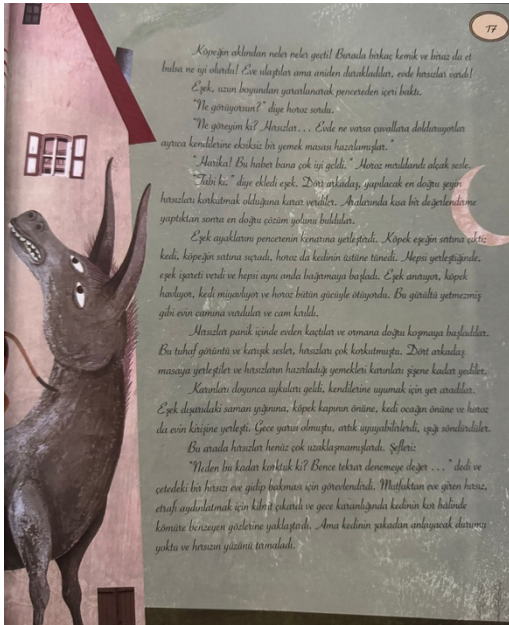 17
Köpeğin aklından neler neler geçti! Burada birkaç kemik ve biraz da et
bulsa ne iyi olurdu! Eve ulaştılar ama aniden durakladılar, evde hırsızlar vardı!
Eşek, uzun boyundan yararlanarak pencereden içeri baktı.
"Ne görüyorsun?" diye horoz sordu.
"Ne göreyim ki? Hırsızlar... Evde ne varsa çuvallara dolduruyorlar
ayrıca kendilerine eksiksiz bir yemek masası hazırlamışlar."
"Harika! Bu haber bana çok iyi geldi." Horoz mırıldandı alçak sesle.
"Tabi ki," diye ekledi eşek. Dört arkadaş, yapılacak en doğru şeyin
hırsızları korkutmak olduğuna karar verdiler. Aralarında kısa bir değerlendirme
yaptıktan sonra en doğru çözüm yolunu buldular.
Eşek ayaklarını pencerenin kenarına yerleştirdi. Köpek eşeğin sırtına çıktı;
kedi, köpeğin sırtına sıçradı, horoz da kedinin üstüne tünedi. Hepsi yerleştiğinde,
eşek işareti verdi ve hepsi aynı anda bağırmaya başladı. Eşek anırıyor, köpek
havlıyor, kedi miyavlıyor ve horoz bütün gücüyle ötüyordu. Bu gürültü yetmezmiş
gibi evin camına vurdular ve cam kırıldı.
Hırsızlar panik içinde evden kaçtılar ve ormana doğru koşmaya başladılar.
Bu tuhaf görüntü ve karışık sesler, hırsızları çok korkutmuştu. Dört arkadaş
masaya yerleştiler ve hırsızların hazırladığı yemekleri karınları şişene kadar yediler.
Karınları doyunca uykuları geldi, kendilerine uyumak için yer aradılar.
Eşek dışarıdaki saman yığınına, köpek kapının önüne, kedi ocağın önüne ve horoz
da evin kirişine yerleşti. Gece yarısı olmuştu, artık uyuyabilirlerdi, ışığı söndürdüler.
Bu arada hırsızlar henüz çok uzaklaşmamışlardı. Şefleri:
"Neden bu kadar korktuk ki? Bence tekrar denemeye değer ..." dedi ve
çetedeki bir hırsızı eve gidip bakması için görevlendirdi. Mutfaktan eve giren hırsız,
etrafı aydınlatmak için kibrit çıkardı ve gece karanlığında kedinin kor hâlinde
kömüre benzeyen gözlerine yaklaştırdı. Ama kedinin şakadan anlayacak durumu
yoktu ve hırsızın yüzünü tırmaladı.